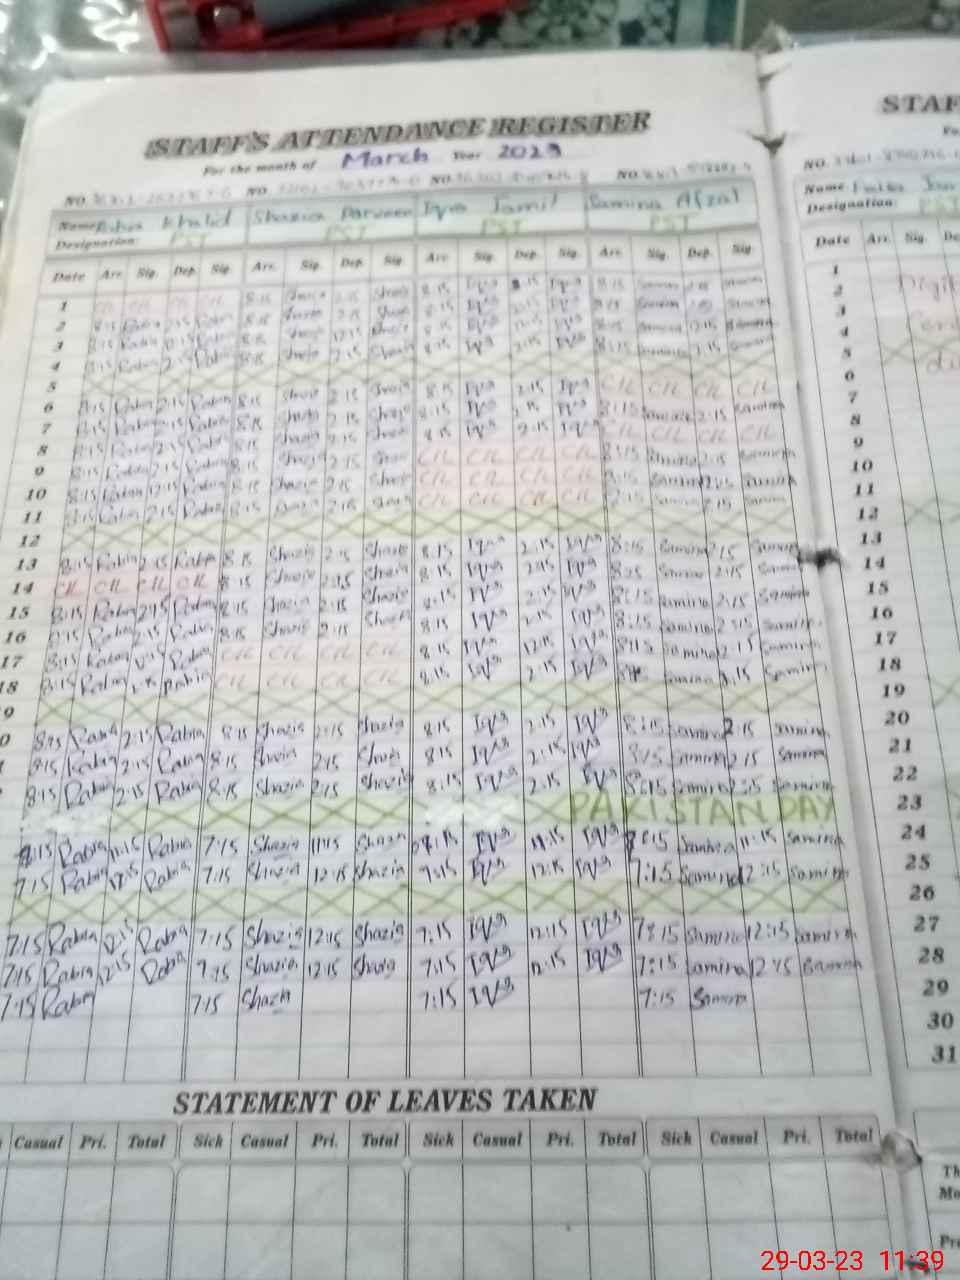 STAFF'S ATTENDANCE REGISTER
For the month of March Year 2023
NO. NO. NO. NO.
Name Rabia Khalid Shazia Parveen Iqra Jamil Samina Afzal
Designation: PST PST PST PST
Date Arr. Sig. Dep. Sig. Arr. Sig. Dep. Sig. Arr. Sig. Dep. Sig. Arr. Sig. Dep. Sig.
1 C/L C/L C/L C/L 8:15 Shazia 2:15 Shazia 8:15 Iqra 2:15 Iqra 8:15 Samina 2:15 Samina
2 8:15 Rabia 2:15 Rabia 8:15 Shazia 2:15 Shazia 8:15 Iqra Iqra Samina Samina
3 8:15 Rabia 12:15 Rabia 8:15 Shazia 12:15 Shazia 8:15 Iqra 12:15 Iqra 8:15 Samina 12:15 Samina
4 8:15 Rabia 2:15 Rabia 8:15 Shazia 2:15 Shazia 8:15 Iqra 2:15 Iqra 8:15 Samina 2:15 Samina
5
6 8:15 Rabia 2:15 Rabia 8:15 Shazia 2:15 Shazia 8:15 Iqra 2:15 Iqra C/L C/L C/L C/L
7 8:15 Rabia 2:15 Rabia 8:15 Shazia 2:15 Shazia 8:15 Iqra 2:15 Iqra 8:15 Samina 2:15 Samina
8 8:15 Rabia 2:15 Rabia 8:15 Shazia 2:15 Shazia 8:15 Iqra 2:15 Iqra C/L C/L C/L C/L
9 8:15 Rabia 2:15 Rabia 8:15 Shazia 2:15 Shazia C/L C/L C/L C/L 8:15 Samina 2:15 Samina
10 8:15 Rabia 12:15 Rabia 8:15 Shazia Shazia C/L C/L C/L C/L 8:15 Samina Samina
11 8:15 Rabia 2:15 Rabia 8:15 Shazia 2:15 Shazia C/L C/L C/L C/L Samina 2:15 Samina
12
13 8:15 Rabia 2:15 Rabia 8:15 Shazia 2:15 Shazia 8:15 Iqra 2:15 Iqra 8:15 Samina 2:15 Samina
14 C/L C/L C/L C/L 8:15 Shazia 2:15 Shazia 8:15 Iqra 2:15 Iqra 8:15 Samina 2:15 Samina
15 8:15 Rabia 2:15 Rabia 8:15 Shazia 2:15 Shazia 8:15 Iqra 2:15 Iqra 8:15 Samina 2:15 Samina
16 8:15 Rabia 2:15 Rabia 8:15 Shazia 2:15 Shazia 8:15 Iqra 2:15 Iqra 8:15 Samina 2:15 Samina
17 8:15 Rabia Rabia C/L C/L C/L C/L 8:15 Iqra 12:15 Iqra 8:15 Samina Samina
18 8:15 Rabia Rabia C/L C/L C/L C/L 8:15 Iqra 2:15 Iqra Samina 2:15 Samina
9
0 8:15 Rabia 2:15 Rabia 8:15 Shazia 2:15 Shazia 8:15 Iqra 2:15 Iqra 8:15 Samina 2:15 Samina
8:15 Rabia 2:15 Rabia 8:15 Shazia 2:15 Shazia 8:15 Iqra 2:15 Iqra 8:15 Samina 2:15 Samina
8:15 Rabia 2:15 Rabia 8:15 Shazia 2:15 Shazia 8:15 Iqra 2:15 Iqra 8:15 Samina 2:15 Samina
PAKISTAN DAY
Rabia 11:15 Rabia 7:15 Shazia 11:15 Shazia Iqra 11:15 Iqra Samina 11:15 Samina
7:15 Rabia 12:15 Rabia 7:15 Shazia 12:15 Shazia 7:15 Iqra 12:15 Iqra 7:15 Samina 12:15 Samina
7:15 Rabia 12:15 Rabia 7:15 Shazia 12:15 Shazia 7:15 Iqra 12:15 Iqra 7:15 Samina 12:15 Samina
7:15 Rabia 12:15 Rabia 7:15 Shazia 12:15 Shazia 7:15 Iqra 12:15 Iqra 7:15 Samina 12:15 Samina
7:15 Rabia 7:15 Shazia 7:15 Iqra 7:15 Samina
STATEMENT OF LEAVES TAKEN
Casual Pri. Total Sick Casual Pri. Total Sick Casual Pri. Total Sick Casual Pri. Total
STAF
NO.
Name
Designation: PST
Date Arr. Sig. De
1
2
3
4
5
6
7
8
9
10
11
12
13
14
15
16
17
18
19
20
21
22
23
24
25
26
27
28
29
30
31
Th
Mo
Pre
29-03-23 11:39